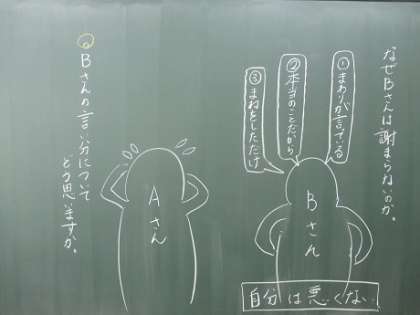 なぜBさんは謝まらないのか。
①まわりが言っている
②本当のことだから
③まねをしただけ
Bさん
自分は悪くない
Aさん
Bさんの言い分について
どう思いますか。